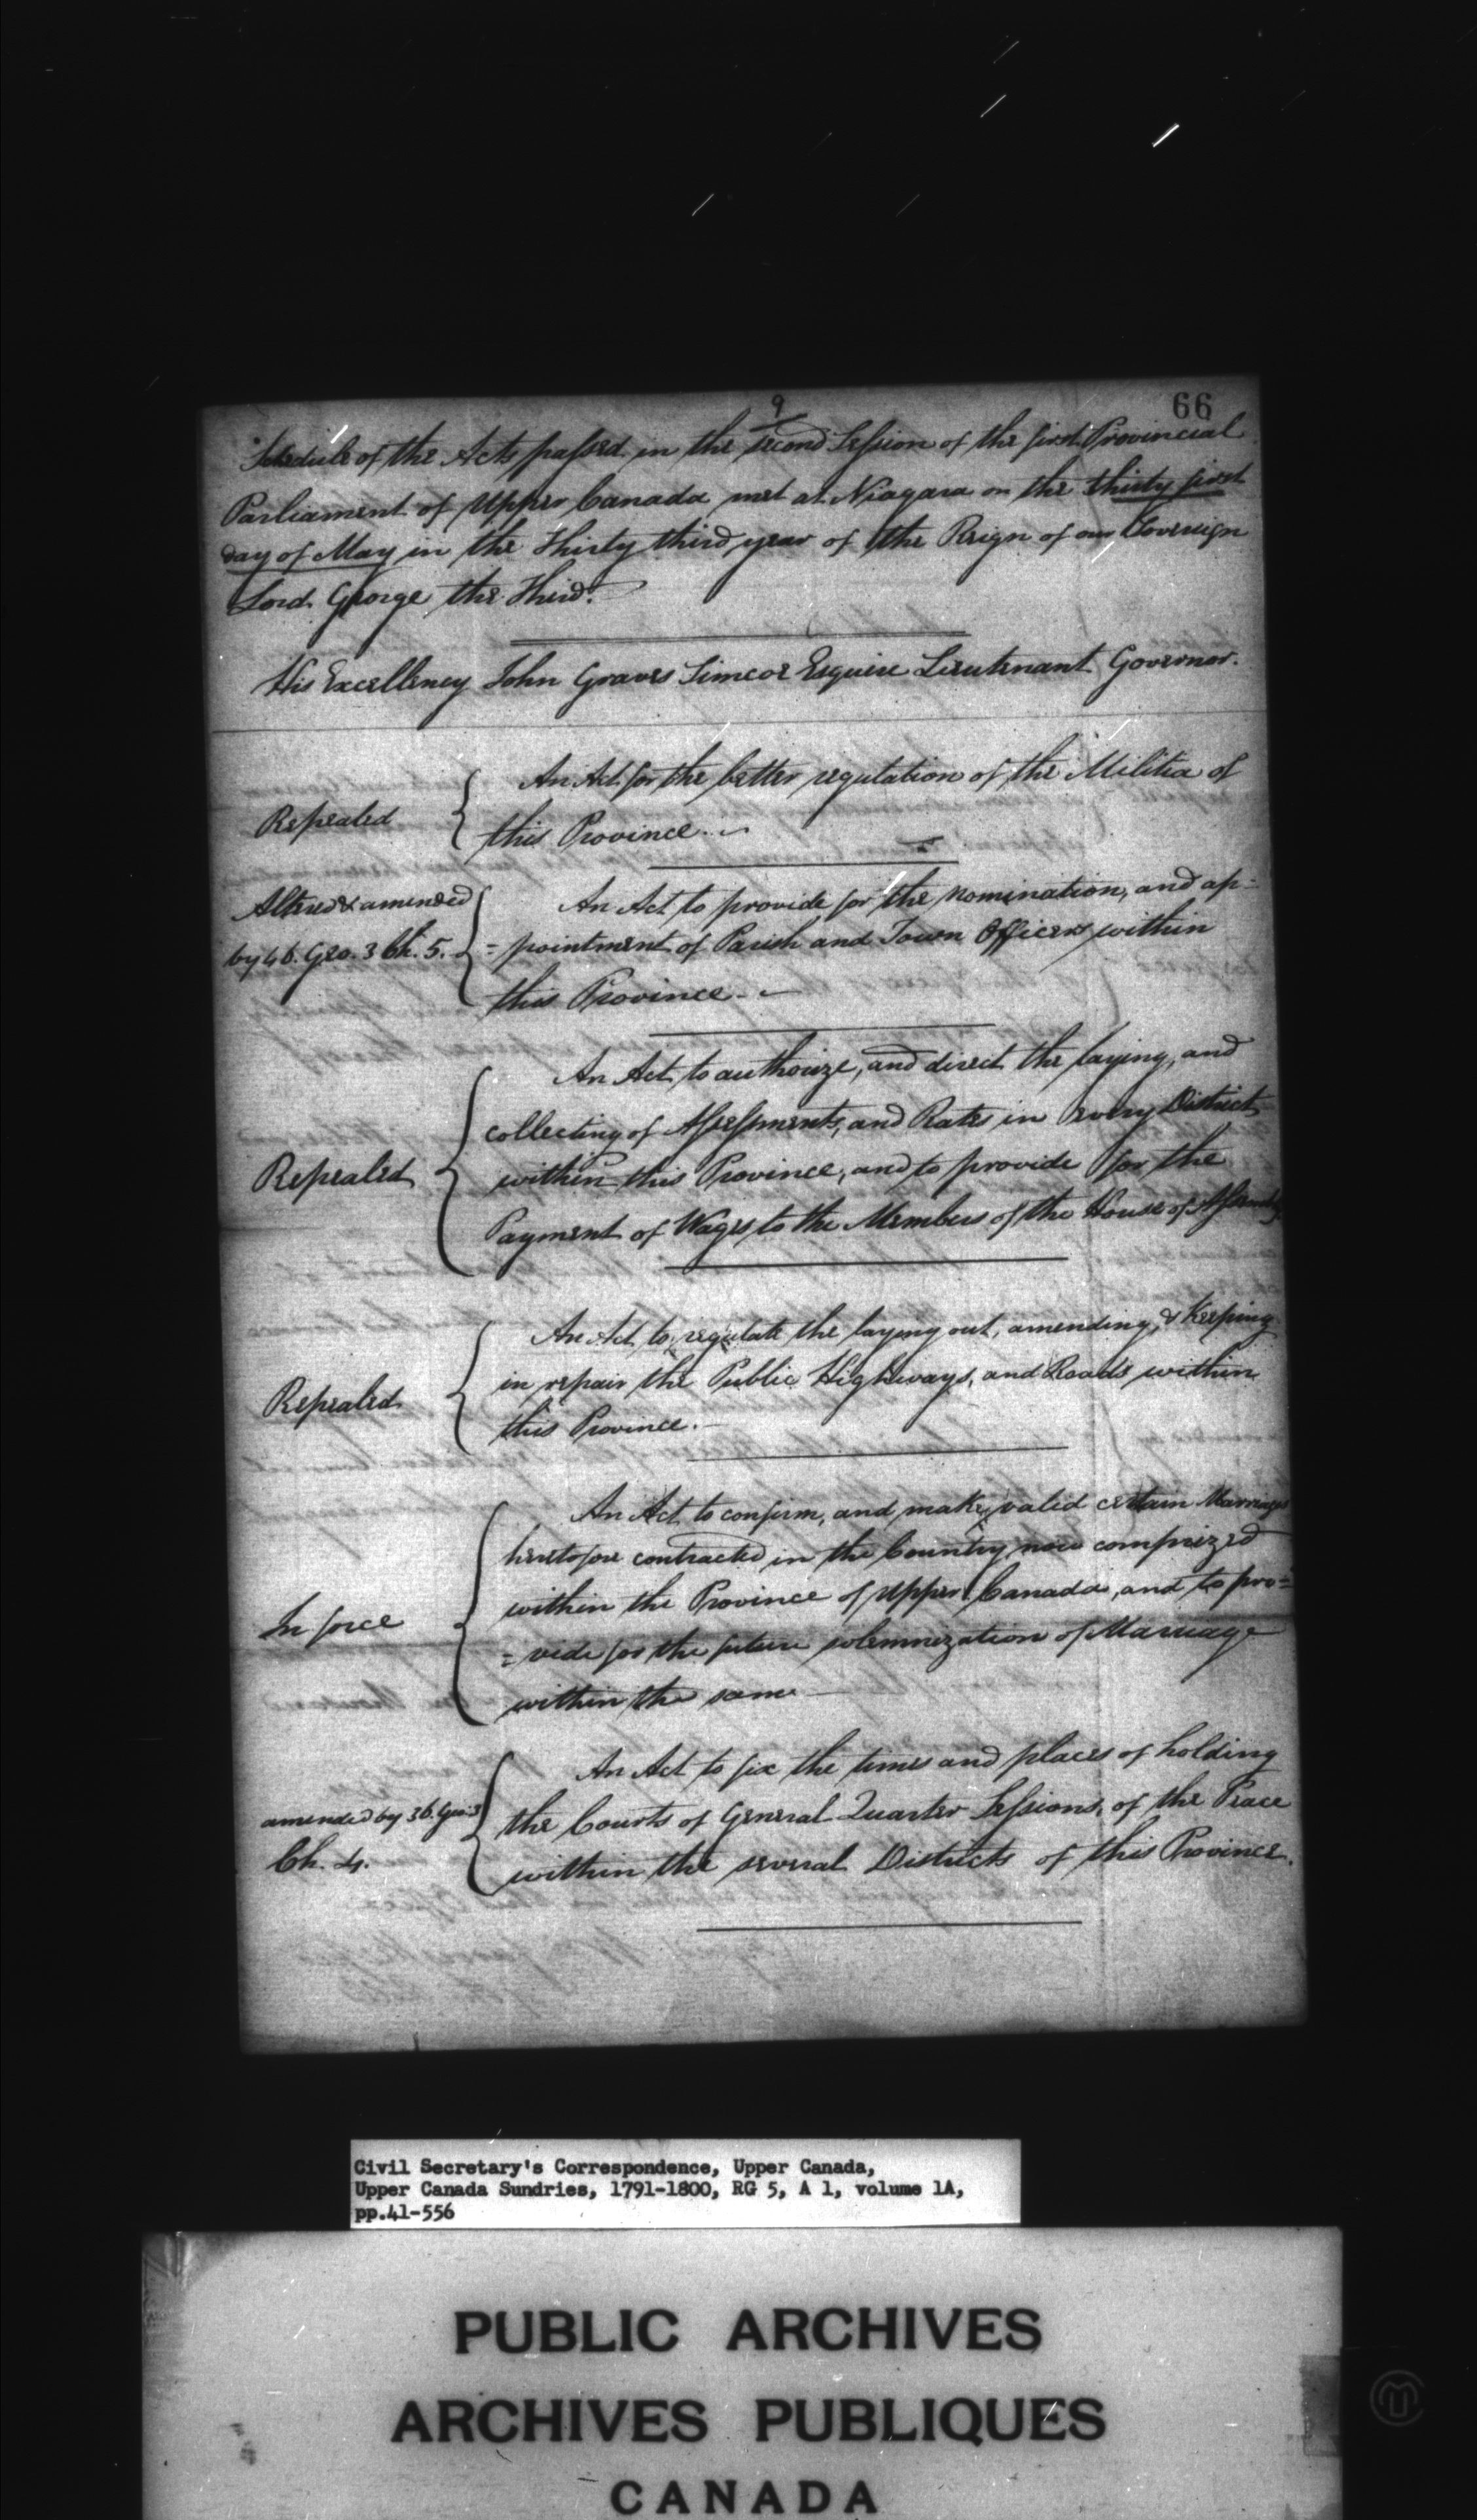 9
66
Schedule of the Acts passed in the second Session of the first Provincial
Parliament of Upper Canada met at Niagara on the thirty first
day of May in the Thirty third year of the Reign of our Sovereign
Lord George the Third.
His Excellency John Graves Simcoe Esquire Lieutenant Governor.
An Act for the better regulation of the Militia of
Repealed
this Province.
Altered & amended
An Act to provide for the nomination, and ap-
by 46. Geo. 3 Ch. 5.
=pointment of Parish and Town Officers within
this Province
An Act to authorize, and direct the laying, and
collecting of Assessments, and Rates in every District
Repealed
within this Province, and to provide for the
Payment of Wages to the Members of the House of Assembly.
An Act to regulate the laying out, amending, & Keeping
Repealed
in repair the Public Highways, and Roads within
this Province.
An Act to confirm, and make valid certain Marriages
heretofore contracted in the Country now comprized
In force
within the Province of Upper Canada, and to pro=
=vide for the future solemnization of Marriage
within the same
An Act to fix the times and places of holding
amended by 36. Geo. 3
the Courts of General Quarter Sessions, of the Peace
Ch. 4.
within the several Districts of this Province.
Civil Secretary's Correspondence, Upper Canada,
Upper Canada Sundries, 1791-1800, RG 5, A 1, volume 1A,
pp.41-556
PUBLIC ARCHIVES
ARCHIVES PUBLIQUES
CANADA